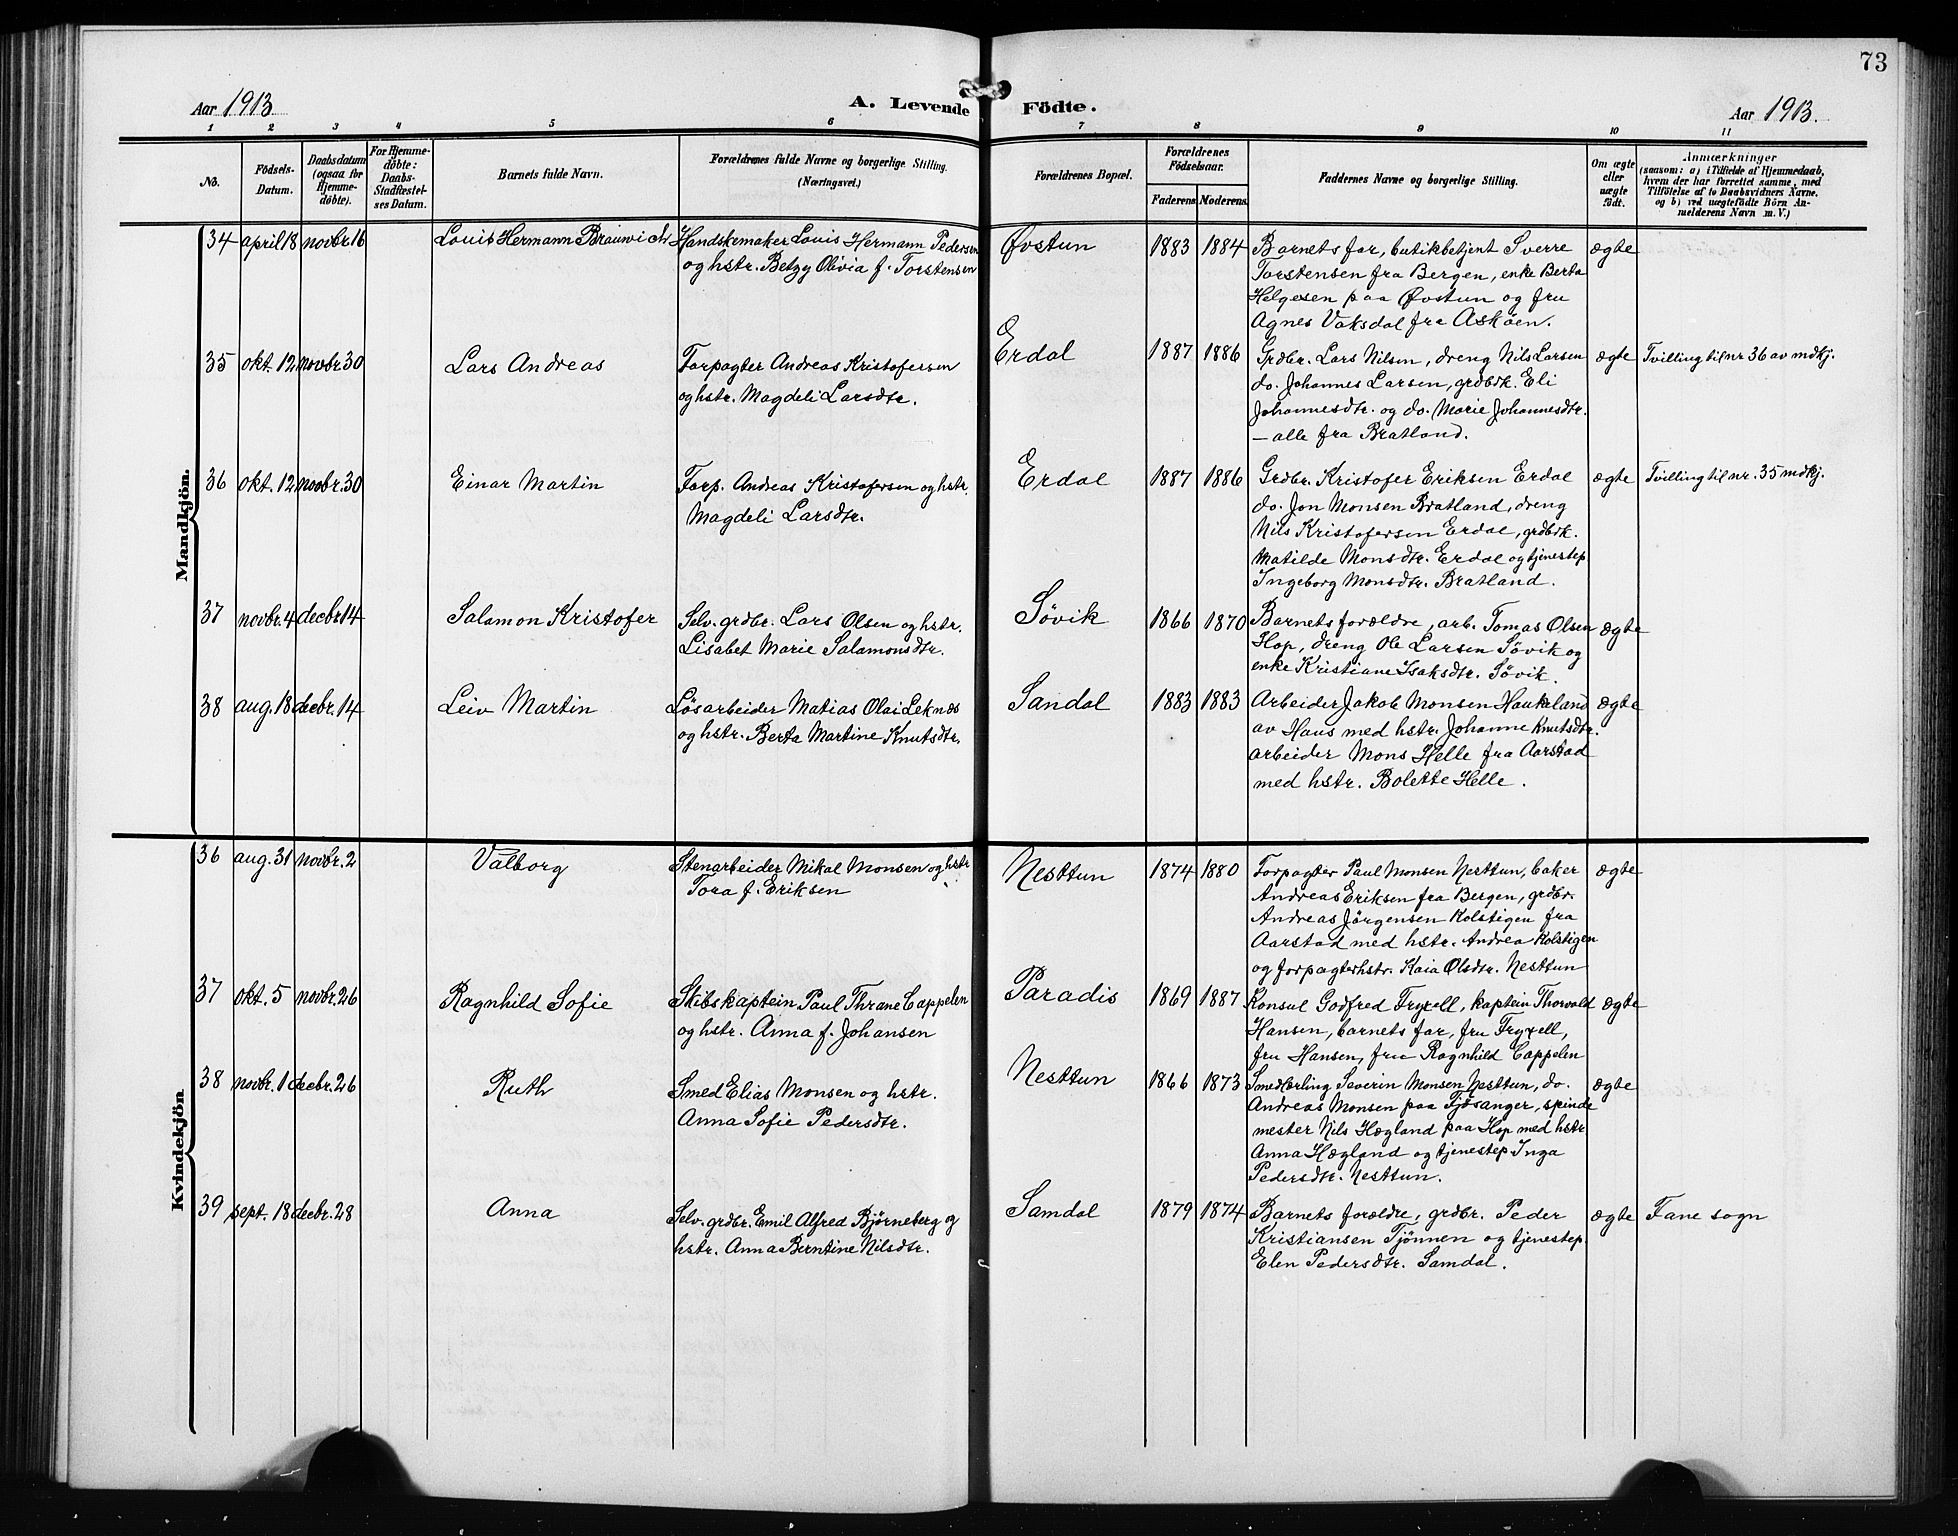 73
Aar 1913
A. Levende Födte.
Aar 1913.
1 2 3 4 5 6 7 8 9 10 11
No.
Födsels-
Datum.
Daabsdatum
(ogsaa for
Hjemme-
döbte).
For Hjemme-
döbte:
Daabs-
Stadfæstel-
ses Datum.
Barnets fulde Navn.
Forældrenes fulde Navne og borgerlige Stilling.
(Næringsvei.)
Forældrenes Bopæl.
Forældrenes
Födselsaar.
Faderens. Moderens.
Faddernes Navne og borgerlige Stilling.
Om ægte
eller
uægte
födt.
Anmærkninger
(saasom: a) i Tilfælde af Hjemmedaab,
hvem der har forrettet samme, med
Tilföielse af to Daabsvidners Navne,
og b) ved uægtefödte Börn An-
melderens Navn m. V.)
Mandkjön.
34 april 18 novbr. 16 Louis Hermann Brauwich Handskemaker Louis Hermann Pedersen
og hstr. Betzy Olivia f. Torstensen
Øvstun 1883 1884 Barnets far, butikbetjent Sverre
Torstensen fra Bergen, enke Berta
Helgesen paa Øvstun og fru
Agnes Vaksdal fra Askøen.
ægte
35 okt. 12 novbr. 30 Lars Andreas Forpagter Andreas Kristofersen
og hstr. Magdeli Larsdtr.
Erdal 1887 1886 Grdbr. Lars Nilsen, dreng Nils Larsen
do. Johannes Larsen, grdbrk. Eli
Johannesdtr. og do. Marie Johannesdtr.
— alle fra Bratland.
ægte Tvilling til nr 36 av mdkj.
36 okt. 12 novbr. 30 Einar Martin Forp. Andreas Kristofersen og hstr.
Magdeli Larsdtr.
Erdal 1887 1886 Grdbr. Kristofer Eriksen Erdal
do. Jon Monsen Bratland, dreng
Nils Kristofersen Erdal, grdbrk.
Matilde Monsdtr. Erdal og tjenestep
Ingeborg Monsdtr. Bratland.
ægte Tvilling til nr. 35 mdkj.
37 novbr. 4 decbr. 14 Salamon Kristofer Selv. grdbr. Lars Olsen og hstr.
Lisabet Marie Salamonsdtr.
Søvik 1866 1870 Barnets forældre, arb. Tomas Olsen
Hop, dreng Ole Larsen Søvik og
enke Kristiane Isaksdtr. Søvik.
ægte
38 aug. 18 decbr. 14 Leiv Martin Løsarbeider Matias Olai Leknes
og hstr. Berta Martine Knutsdtr.
Sandal 1883 1883 Arbeider Jakob Monsen Haukeland
av Haus med hstr. Johanne Knutsdtr.
arbeider Mons Helle fra Aarstad
med hstr. Bolette Helle.
ægte
Kvindekjön
36 aug. 31 novbr. 2 Valborg Stenarbeider Mikal Monsen og hstr
Tora f. Eriksen
Nesttun 1874 1880 Forpagter Paul Monsen Nesttun, baker
Andreas Eriksen fra Bergen, grdbr.
Andreas Jørgensen Kolstigen fra
Aarstad med hstr. Andrea Kolstigen
og forpagterhstr. Kaia Olsdtr. Nesttun
ægte
37 okt. 5 novbr. 26 Ragnhild Sofie Skibskaptein Paul Thrane Cappelen
og hstr. Anna f. Johansen
Paradis 1869 1887 Konsul Godfred Fryxell, kaptein Thorvald
Hansen, barnets far, fru Fryxell,
fru Hansen, fru Ragnhild Cappelen
ægte
38 novbr. 1 decbr. 26 Ruth Smed Elias Monsen og hstr.
Anna Sofie Pedersdtr.
Nesttun 1866 1873 Smedlærling Severin Monsen Nesttun, do.
Andreas Monsen paa Fjøsanger, spinde
mester Nils Hægland paa Hop med hstr
Anna Hægland og tjenestep Inga
Pedersdtr. Nesttun.
ægte
39 sept. 18 decbr. 28 Anna Selv. grdbr. Emil Alfred Bjørneberg og
hstr. Anna Berntine Nilsdtr.
Samdal 1879 1874 Barnets forældre, grdbr. Peder
Kristiansen Tjønnen og tjenestep.
Elen Pedersdtr. Samdal.
ægte Fane sogn